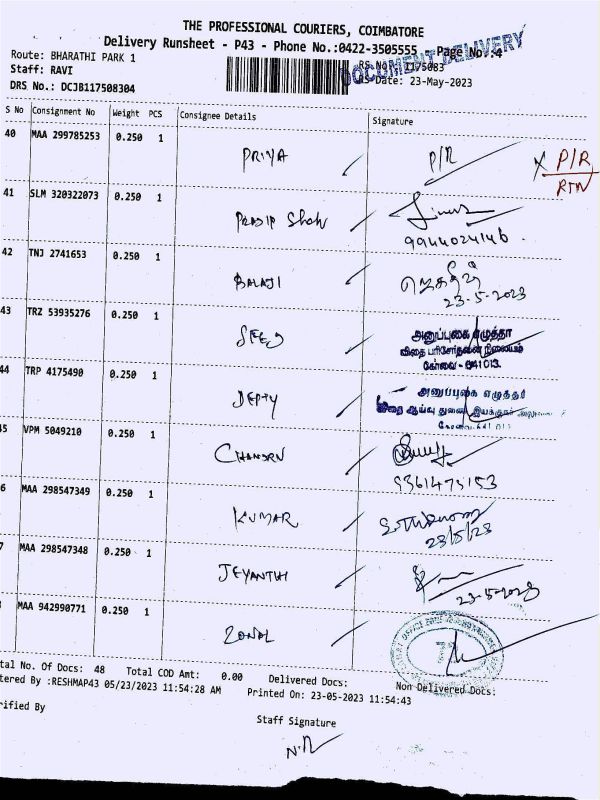 THE PROFESSIONAL COURIERS, COIMBATORE
Delivery Runsheet - P43 - Phone No.:0422-3505555 Page No.4
DOCUMENT DELIVERY
Route: BHARATHI PARK 1 RS No: 1175083
Staff: RAVI RS Date: 23-May-2023
DRS No.: DCJB117508304
S No Consignment No Weight PCS Consignee Details Signature
40 MAA 299785253 0.250 1 PRIYA P/R P/R
RTN
41 SLM 320322073 0.250 1 PRADIP Shah
9944024146.
42 TNJ 2741653 0.250 1 BALAJI
23-5-2023
43 TRZ 53935276 0.250 1 SEED அனுப்புகை எழுத்தர்
விதை பரிசோதனை நிலையம்
கோவை - 641 013.
44 TRP 4175490 0.250 1 DEPTY அனுப்புகை எழுத்தர்
விதை ஆய்வு துணை இயக்குநர்
கோவை-641 013
45 VPM 5049210 0.250 1 CHANDRU
9361475153
6 MAA 298547349 0.250 1 KUMAR
23/5/23
7 MAA 298547348 0.250 1 JEYANTHI
23-5-2023
MAA 942990771 0.250 1 ZONAL
tal No. Of Docs: 48 Total COD Amt: 0.00 Delivered Docs: Non Delivered Docs:
tered By :RESHMAP43 05/23/2023 11:54:28 AM Printed On: 23-05-2023 11:54:43
rified By
Staff Signature
N.R